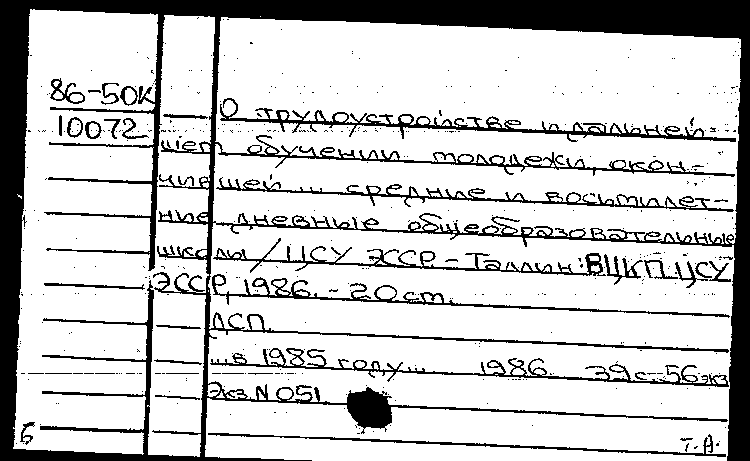 86-50К
10072
О трудоустройстве и дальней-
шем обучении молодежи, окон-
чившей ... средние и восьмилет-
ние дневные общеобразовательные
школы / ЦСУ ЭССР. - Таллин: ВЦКП ЦСУ
ЭССР, 1986. - 20 ст.
ДСП.
...в 1985 году... 1986. 39 с. 56 экз
Экз. N 051.
Б
Т.А.